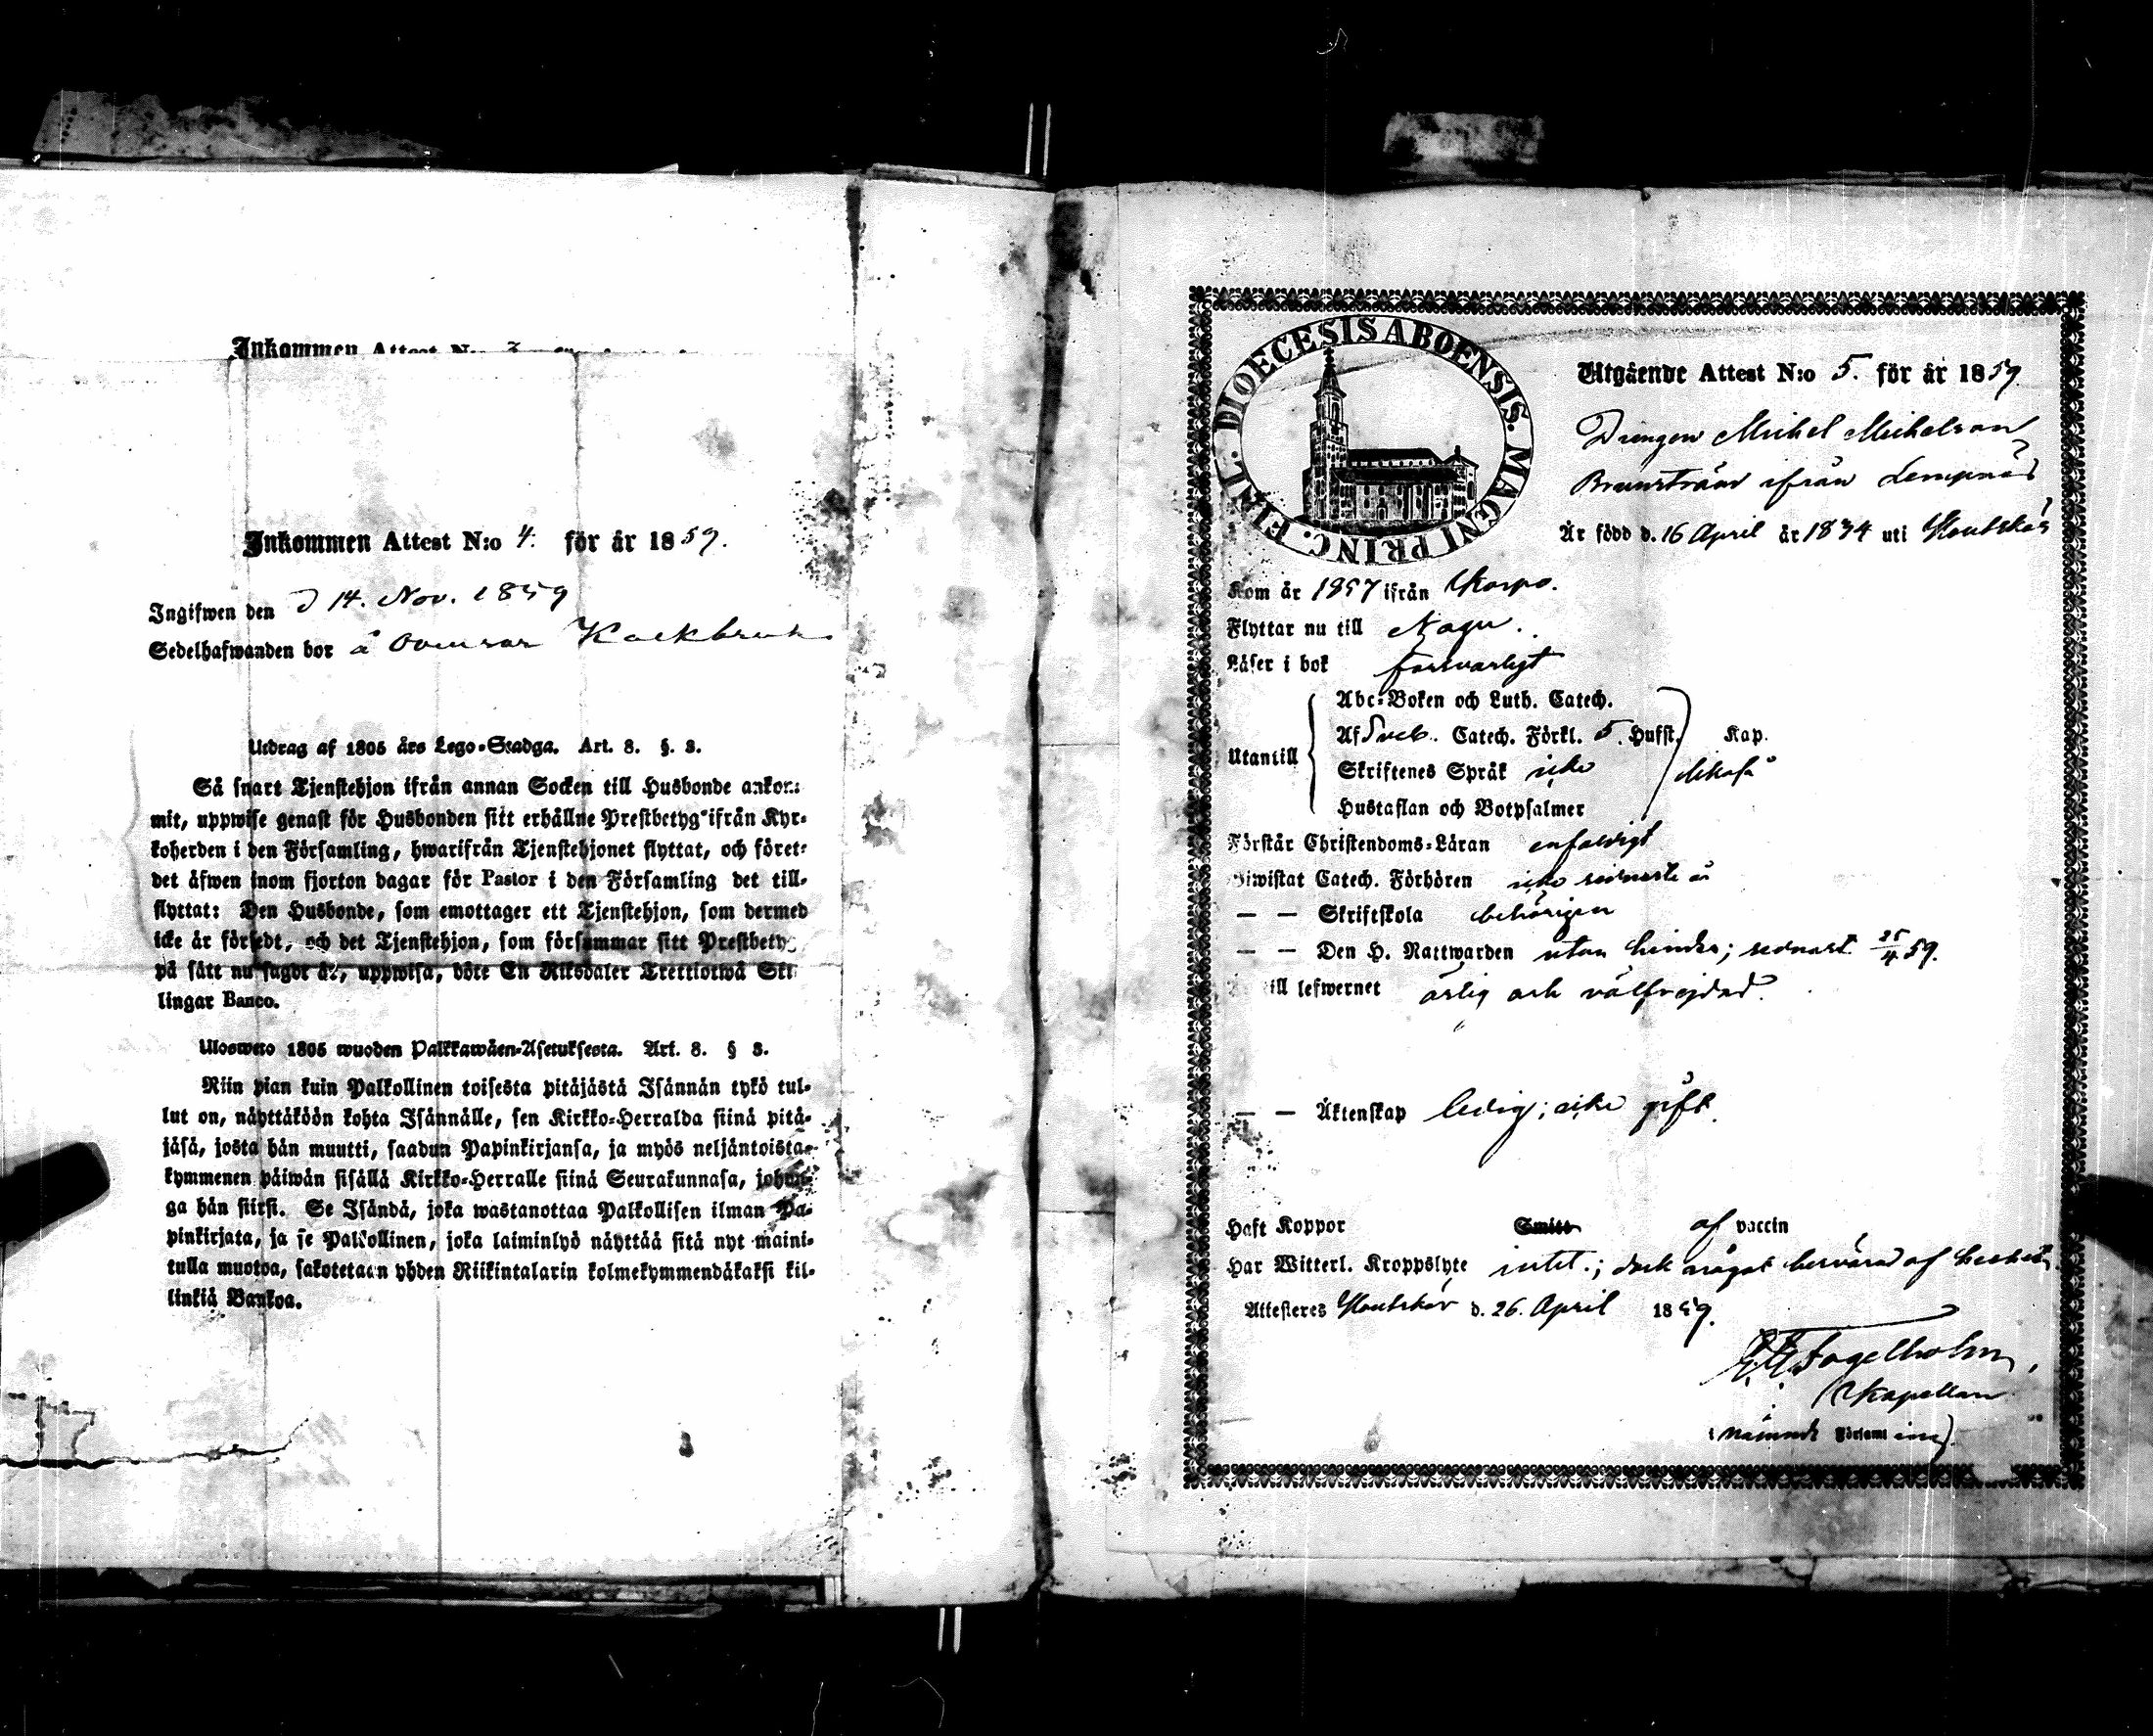 Inkommen Attest N:o
Inkommen Attest N:o 4. för år 1859.
Ingifwen den d 14. Nov. 1859
Sedelhafwanden bor å Ovensor Kalkbruk
Utdrag af 1805 års Lego-Stadga. Art. 8. §. 3.
Så snart Tjenstehjon ifrån annan Socken till Husbonde ankom-
mit, uppwise genast för Husbonden sitt erhållne Prestbetyg ifrån Kyr-
koherden i den Församling, hwarifrån Tjenstehjonet flyttat, och föret-
det äfwen inom fjorton dagar för Pastor i den Församling det till-
flyttat: Den Husbonde, som emottager ett Tjenstehjon, som dermed
icke är försedt, och det Tjenstehjon, som försummar sitt Prestbetyg
på sätt nu sagdt är, uppwisa, böte En Riksdaler Trettiotwå Skil
lingar Banco.
Ulosweto 1805 wuoden Palkkawäen-Asetuksesta. Art. 8. § 3.
Niin pian kuin Palkollinen toisesta pitäjästä Isännän tykö tul-
lut on, näyttäköön kohta Isännälle, sen Kirkko-Herralda siinä pitä-
jäsä, josta hän muutti, saadun Papinkirjansa, ja myös neljäntoista-
kymmenen päiwän sisällä Kirkko-Herralle siinä Seurakunnasa, johon-
ga hän siirsi. Se Isändä, joka wastanottaa Palkollisen ilman Pa-
pinkirjata, ja se Palkollinen, joka laiminlyö näyttää sitä nyt maini-
tulla muotoa, sakotetaan yhden Riikintalarin kolmekymmendäkaksi kil-
linkiä Bankoa.
DIOECESIS ABOENSIS. MAGNI PRINC. FINL.
Utgående Attest N:o 5. för år 1859.
Drengen Michel Michelsson
Brunström ifrån Lempnäs
Är född d. 16 April år 1834 uti Houtskär
Kom år 1857 ifrån Korpo.
Flyttar nu till Nagu.
Läser i bok försvarligt
Abc-Boken och Luth. Catech.
Af Sveb. Catech. Förkl. 5. Hufst. Kap.
Utantill
Skriftenes Språk icke
Hustaflan och Botpsalmer
Förstår Christendoms-Läran enfaldigt
Biwistat Catech. Förhören icke sednaste år
— — Skriftskola behörigen
— — Den H. Nattwarden utan hinder; sednast 25/4 59.
till lefwernet ärlig och välfrejdad.
— — Äktenskap ledig; icke gift.
Haft Koppor Smitt af vaccin
Har Witterl. Kroppslyte intet; dock något besvärad af
Attesteres Houtskär d. 26. April 1859.
Fogelholm,
Kapellan
nämnde Församl ing).